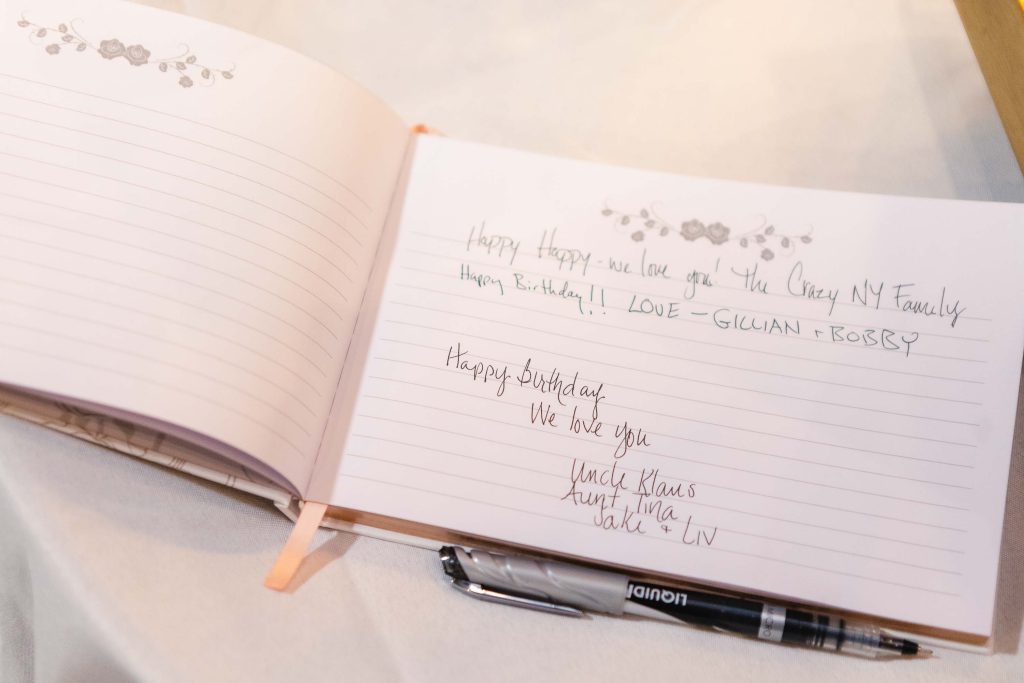 Happy Happy - we love you! The Crazy NY Family
Happy Birthday!! LOVE - GILLIAN + BOBBY
Happy Birthday
We love you
Uncle Klaus
Aunt Tina
Jake + LIV
LIQUID
MICRO